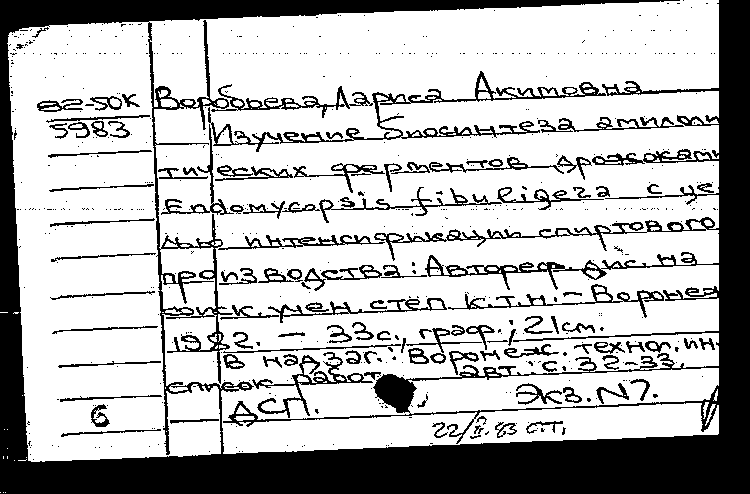 82-50К Воробьева, Лариса Акимовна
5983 Изучение биосинтеза амилоли
тических ферментов дрожжами
Endomycopsis fibuligera с це
лью интенсификации спиртового
производства: Автореф. дис. на
соиск. учен. степ. к.т.н. - Воронеж
1982. - 33с., граф.; 21см.
В надзаг.: Воронеж. технол. ин-
список работ авт.: с. 32-33.
6 ДСП. Экз. N7.
22/II.83